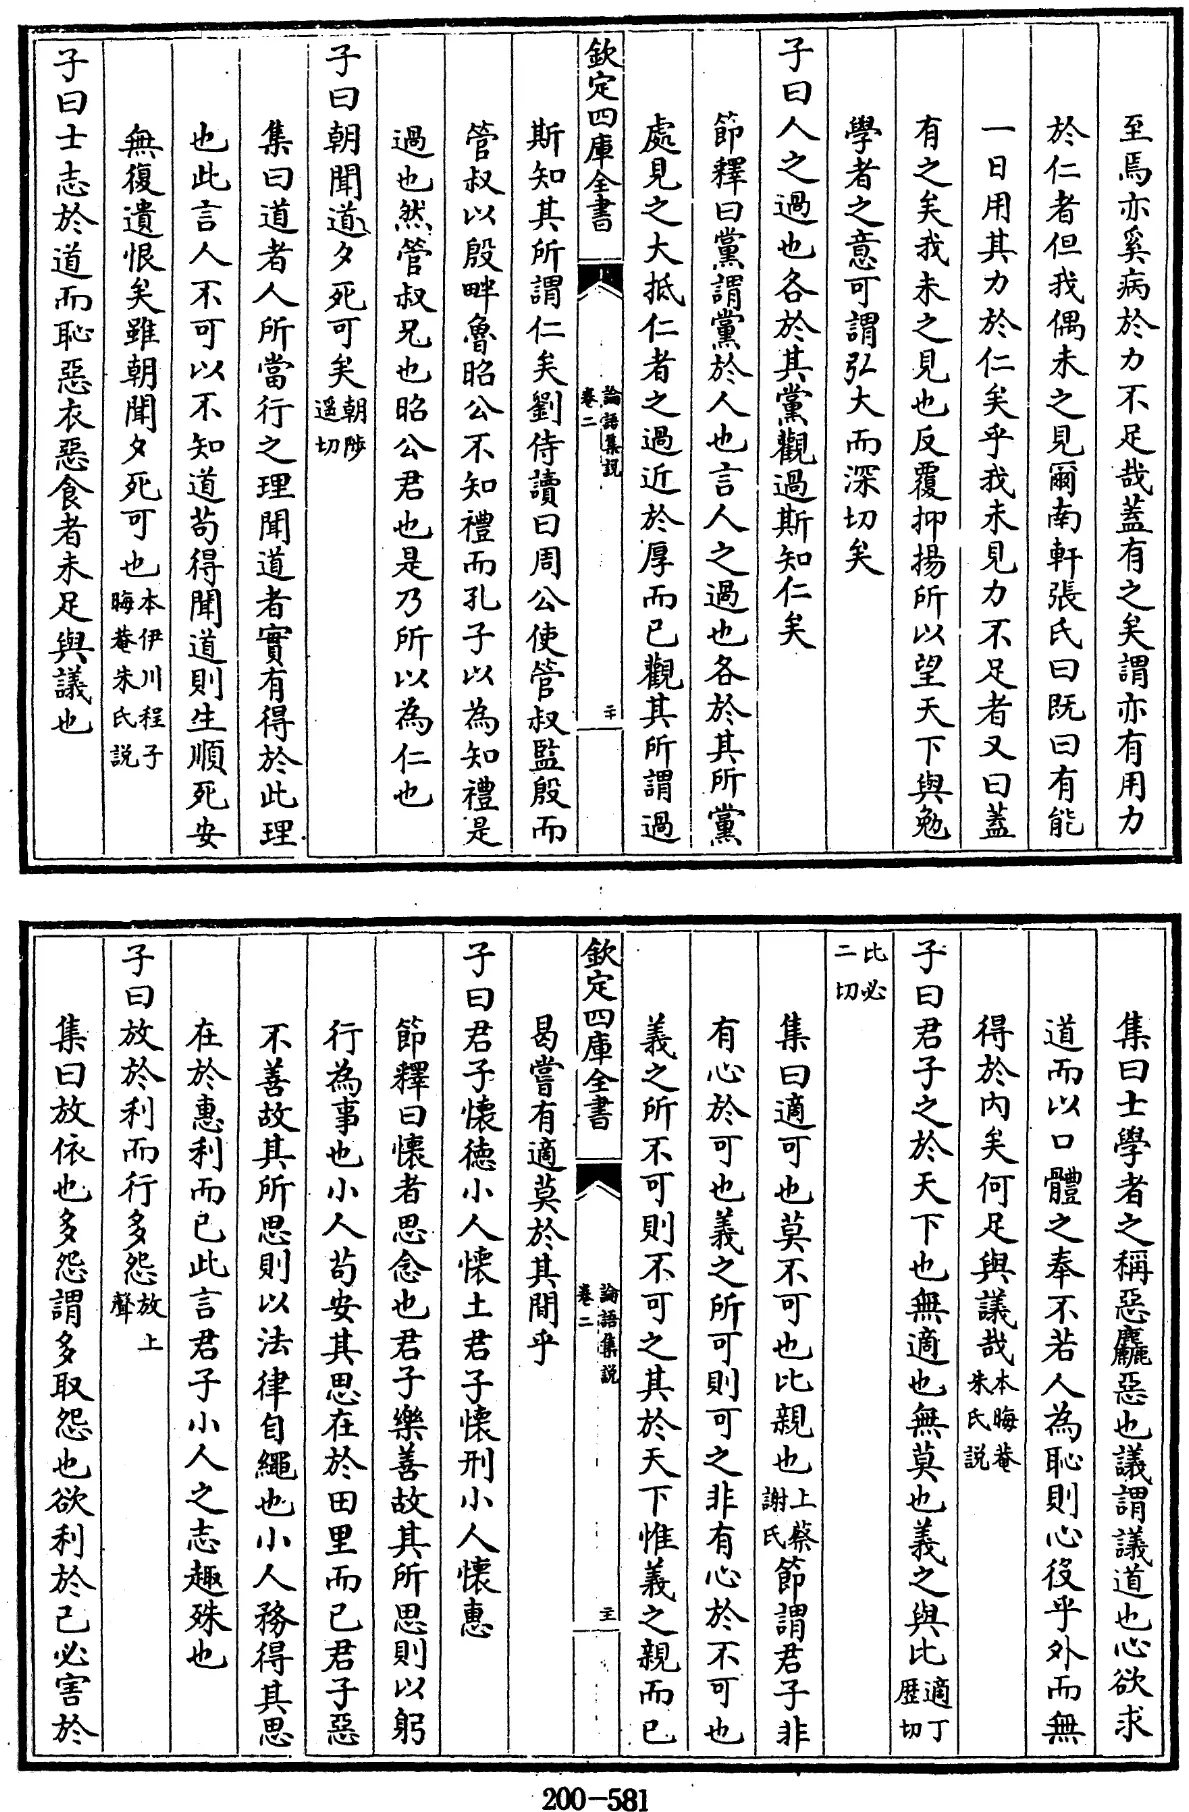 至焉亦奚病於力不足哉蓋有之矣謂亦有用力
於仁者但我偶未之見爾南軒張氏曰既曰有能
一日用其力於仁矣乎我未見力不足者又曰蓋
有之矣我未之見也反覆抑揚所以望天下與勉
學者之意可謂弘大而深切矣
子曰人之過也各於其黨觀過斯知仁矣
節釋曰黨謂黨於人也言人之過也各於其所黨
處見之大抵仁者之過近於厚而已觀其所謂過
欽定四庫全書 論語集說 卷二 二十
斯知其所謂仁矣劉侍讀曰周公使管叔監殷而
管叔以殷畔魯昭公不知禮而孔子以為知禮是
過也然管叔兄也昭公君也是乃所以為仁也
子曰朝聞道夕死可矣朝陟遥切
集曰道者人所當行之理聞道者實有得於此理
也此言人不可以不知道茍得聞道則生順死安
無復遺恨矣雖朝聞夕死可也本伊川程子晦菴朱氏說
子曰士志於道而恥惡衣惡食者未足與議也
集曰士學者之稱惡麤惡也議謂議道也心欲求
道而以口體之奉不若人為恥則心役乎外而無
得於內矣何足與議哉本晦菴朱氏說
子曰君子之於天下也無適也無莫也義之與比適丁歷切
比必二切
集曰適可也莫不可也比親也上蔡謝氏節謂君子非
有心於可也義之所可則可之非有心於不可也
義之所不可則不可之其於天下惟義之親而已
欽定四庫全書 論語集說 卷二 主
曷嘗有適莫於其間乎
子曰君子懷德小人懷土君子懷刑小人懷惠
節釋曰懷者思念也君子樂善故其所思則以躬
行為事也小人茍安其思在於田里而已君子惡
不善故其所思則以法律自繩也小人務得其思
在於惠利而已此言君子小人之志趣殊也
子曰放於利而行多怨放上聲
集曰放依也多怨謂多取怨也欲利於己必害於
200-581